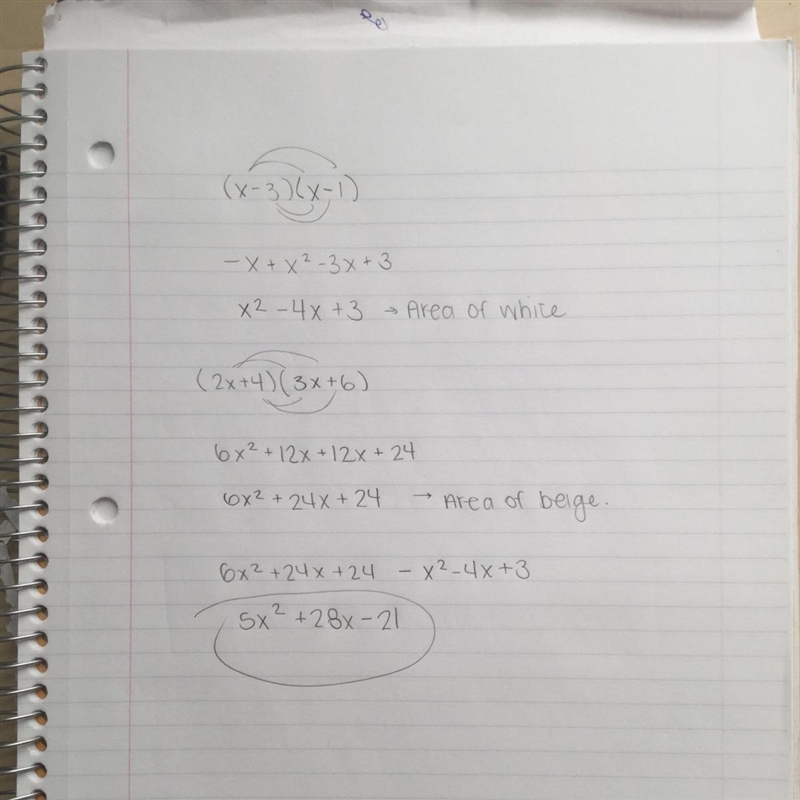 (x-3)(x-1)
-x + x² -3x + 3
x² - 4x + 3 → Area of white
(2x+4)(3x+6)
6x² + 12x + 12x + 24
6x² + 24x + 24 → Area of beige.
6x² + 24x + 24 - x² - 4x + 3
5x² + 28x - 21